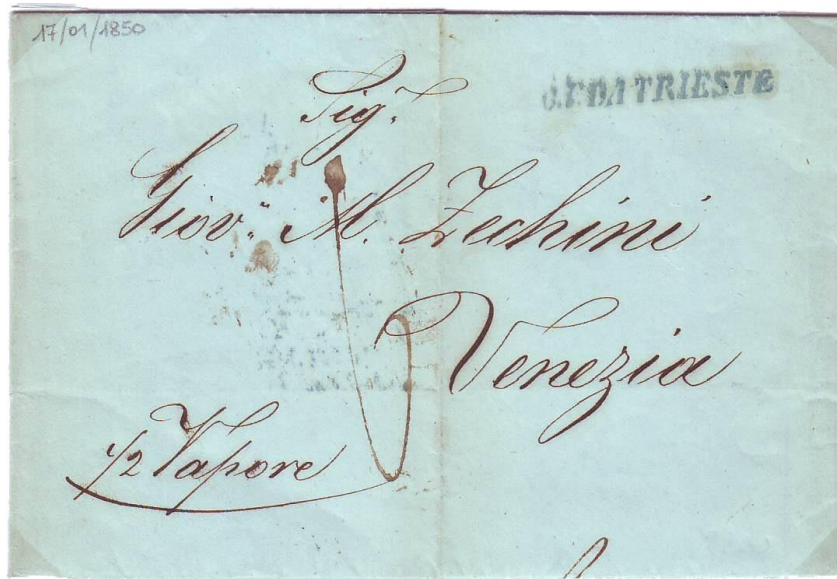 17/01/1850
DA TRIESTE
Sig.r
Giov. M. Zechini
Venezia
1/2 Vapore